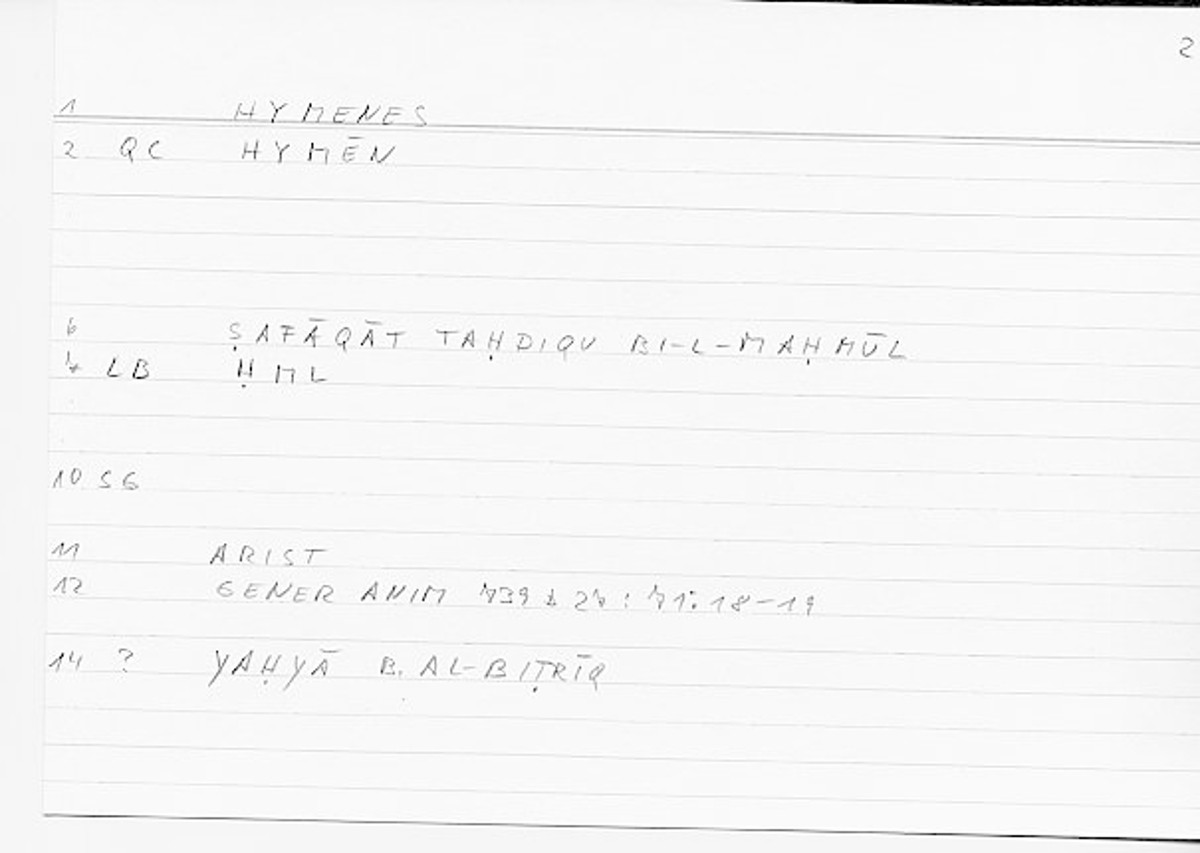 2
1 HYMENES
2 QC HYMĒN
6 ṢAFĀQĀT TAḤDIQU BI-L-MAḤMŪL
7 LB ḤML
10 SG
11 ARIST
12 GENER ANIM 739 b 27 : 71. 18-19
14 ? YAḤYĀ B. AL-BIṬRĪQ